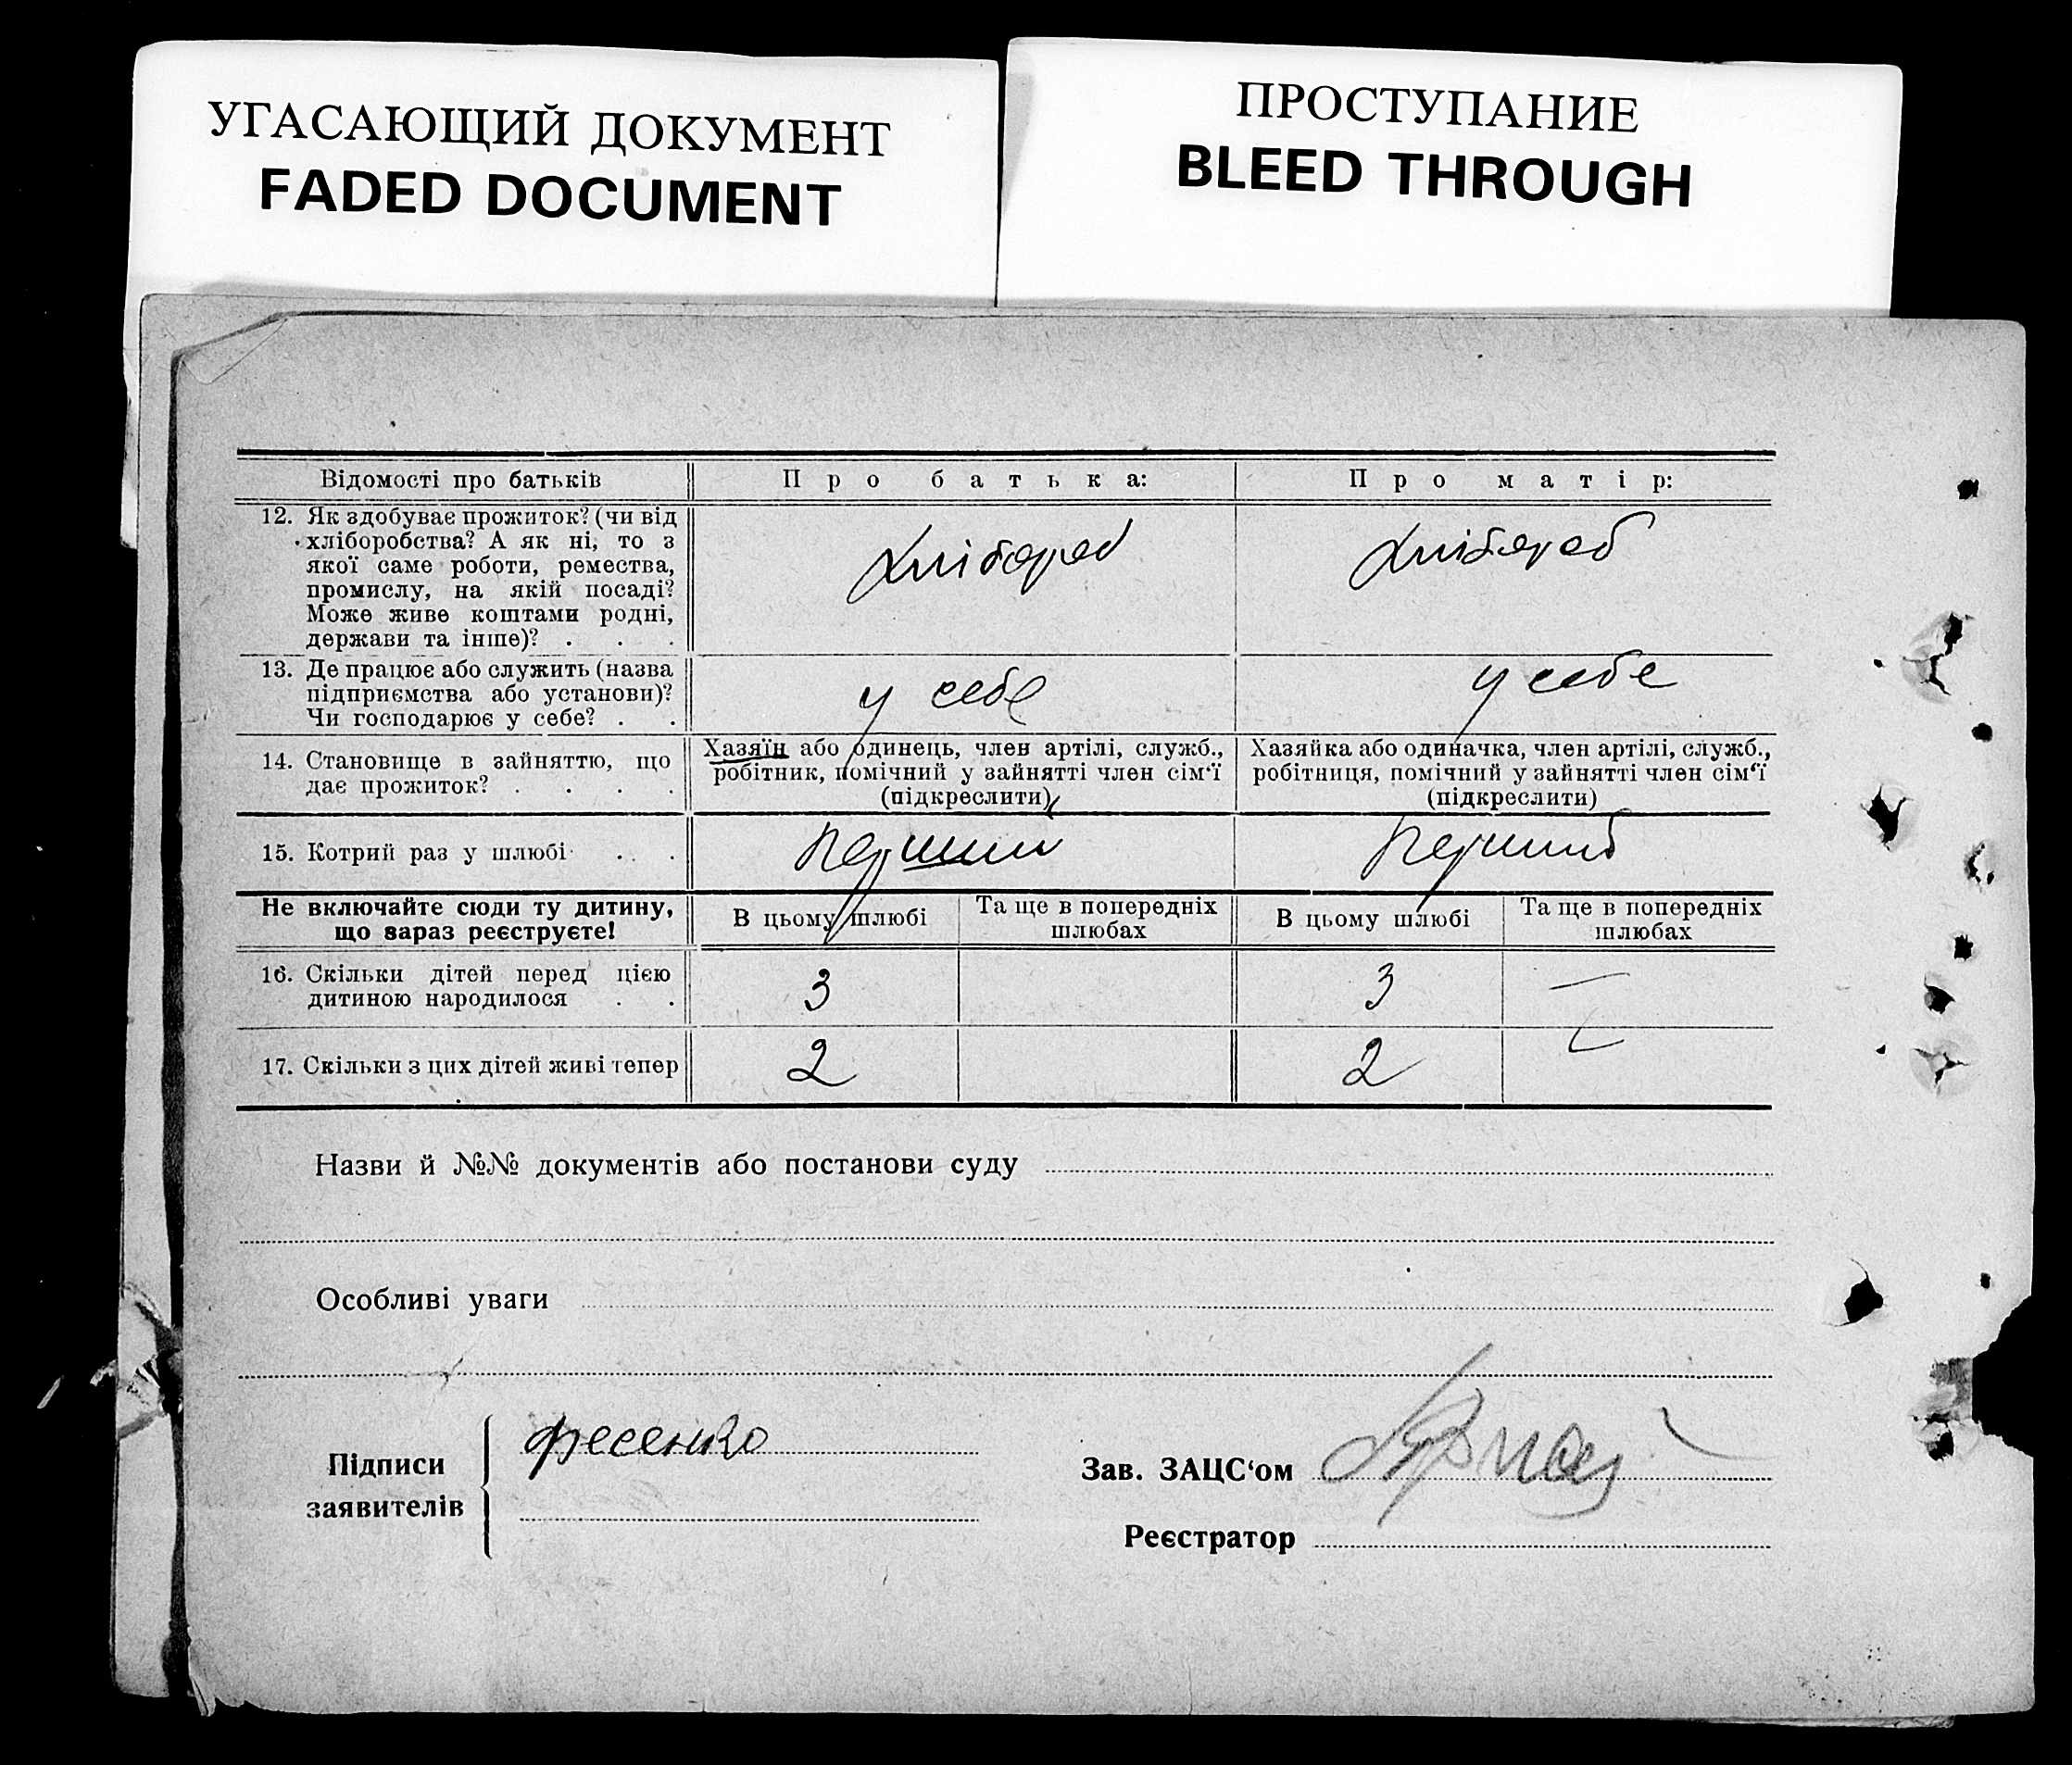 УГАСАЮЩИЙ ДОКУМЕНТ
FADED DOCUMENT
ПРОСТУПАНИЕ
BLEED THROUGH
Відомості про батьків
Про батька:
Про матір:
12. Як здобуває прожиток? (чи від
хліборобства? А як ні, то з
якої саме роботи, ремества,
промислу, на якій посаді?
Може живе коштами родні,
держави та інше)? . . .
хлібороб
хлібороб
13. Де працює або служить (назва
підприємства або установи)?
Чи господарює у себе? . .
у себе
у себе
14. Становище в зайняттю, що
дає прожиток? . . . .
Хазяїн або одинець, член артілі, служб.,
робітник, помічний у зайнятті член сім'ї
(підкреслити)
Хазяйка або одиначка, член артілі, служб.,
робітниця, помічний у зайнятті член сім'ї
(підкреслити)
15. Котрий раз у шлюбі . . .
Не включайте сюди ту дитину,
що зараз реєструєте!
В цьому шлюбі
Та ще в попередніх
шлюбах
В цьому шлюбі
Та ще в попередніх
шлюбах
16. Скільки дітей перед цією
дитиною народилося . .
3
3
—
17. Скільки з цих дітей живі тепер
2
2
Назви й №№ документів або постанови суду
Особливі уваги
Підписи
заявителів
Фесенко
Зав. ЗАЦС'ом
Реєстратор